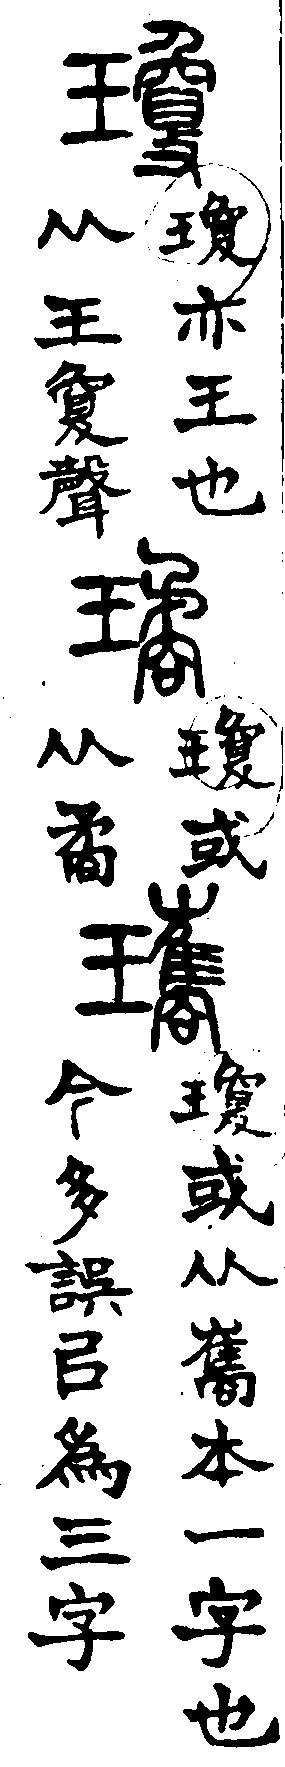 瓊
瓊亦王也
从王夐聲
璚
瓊或
从矞
瓗
瓊或从巂本一字也
今多誤㠯為三字